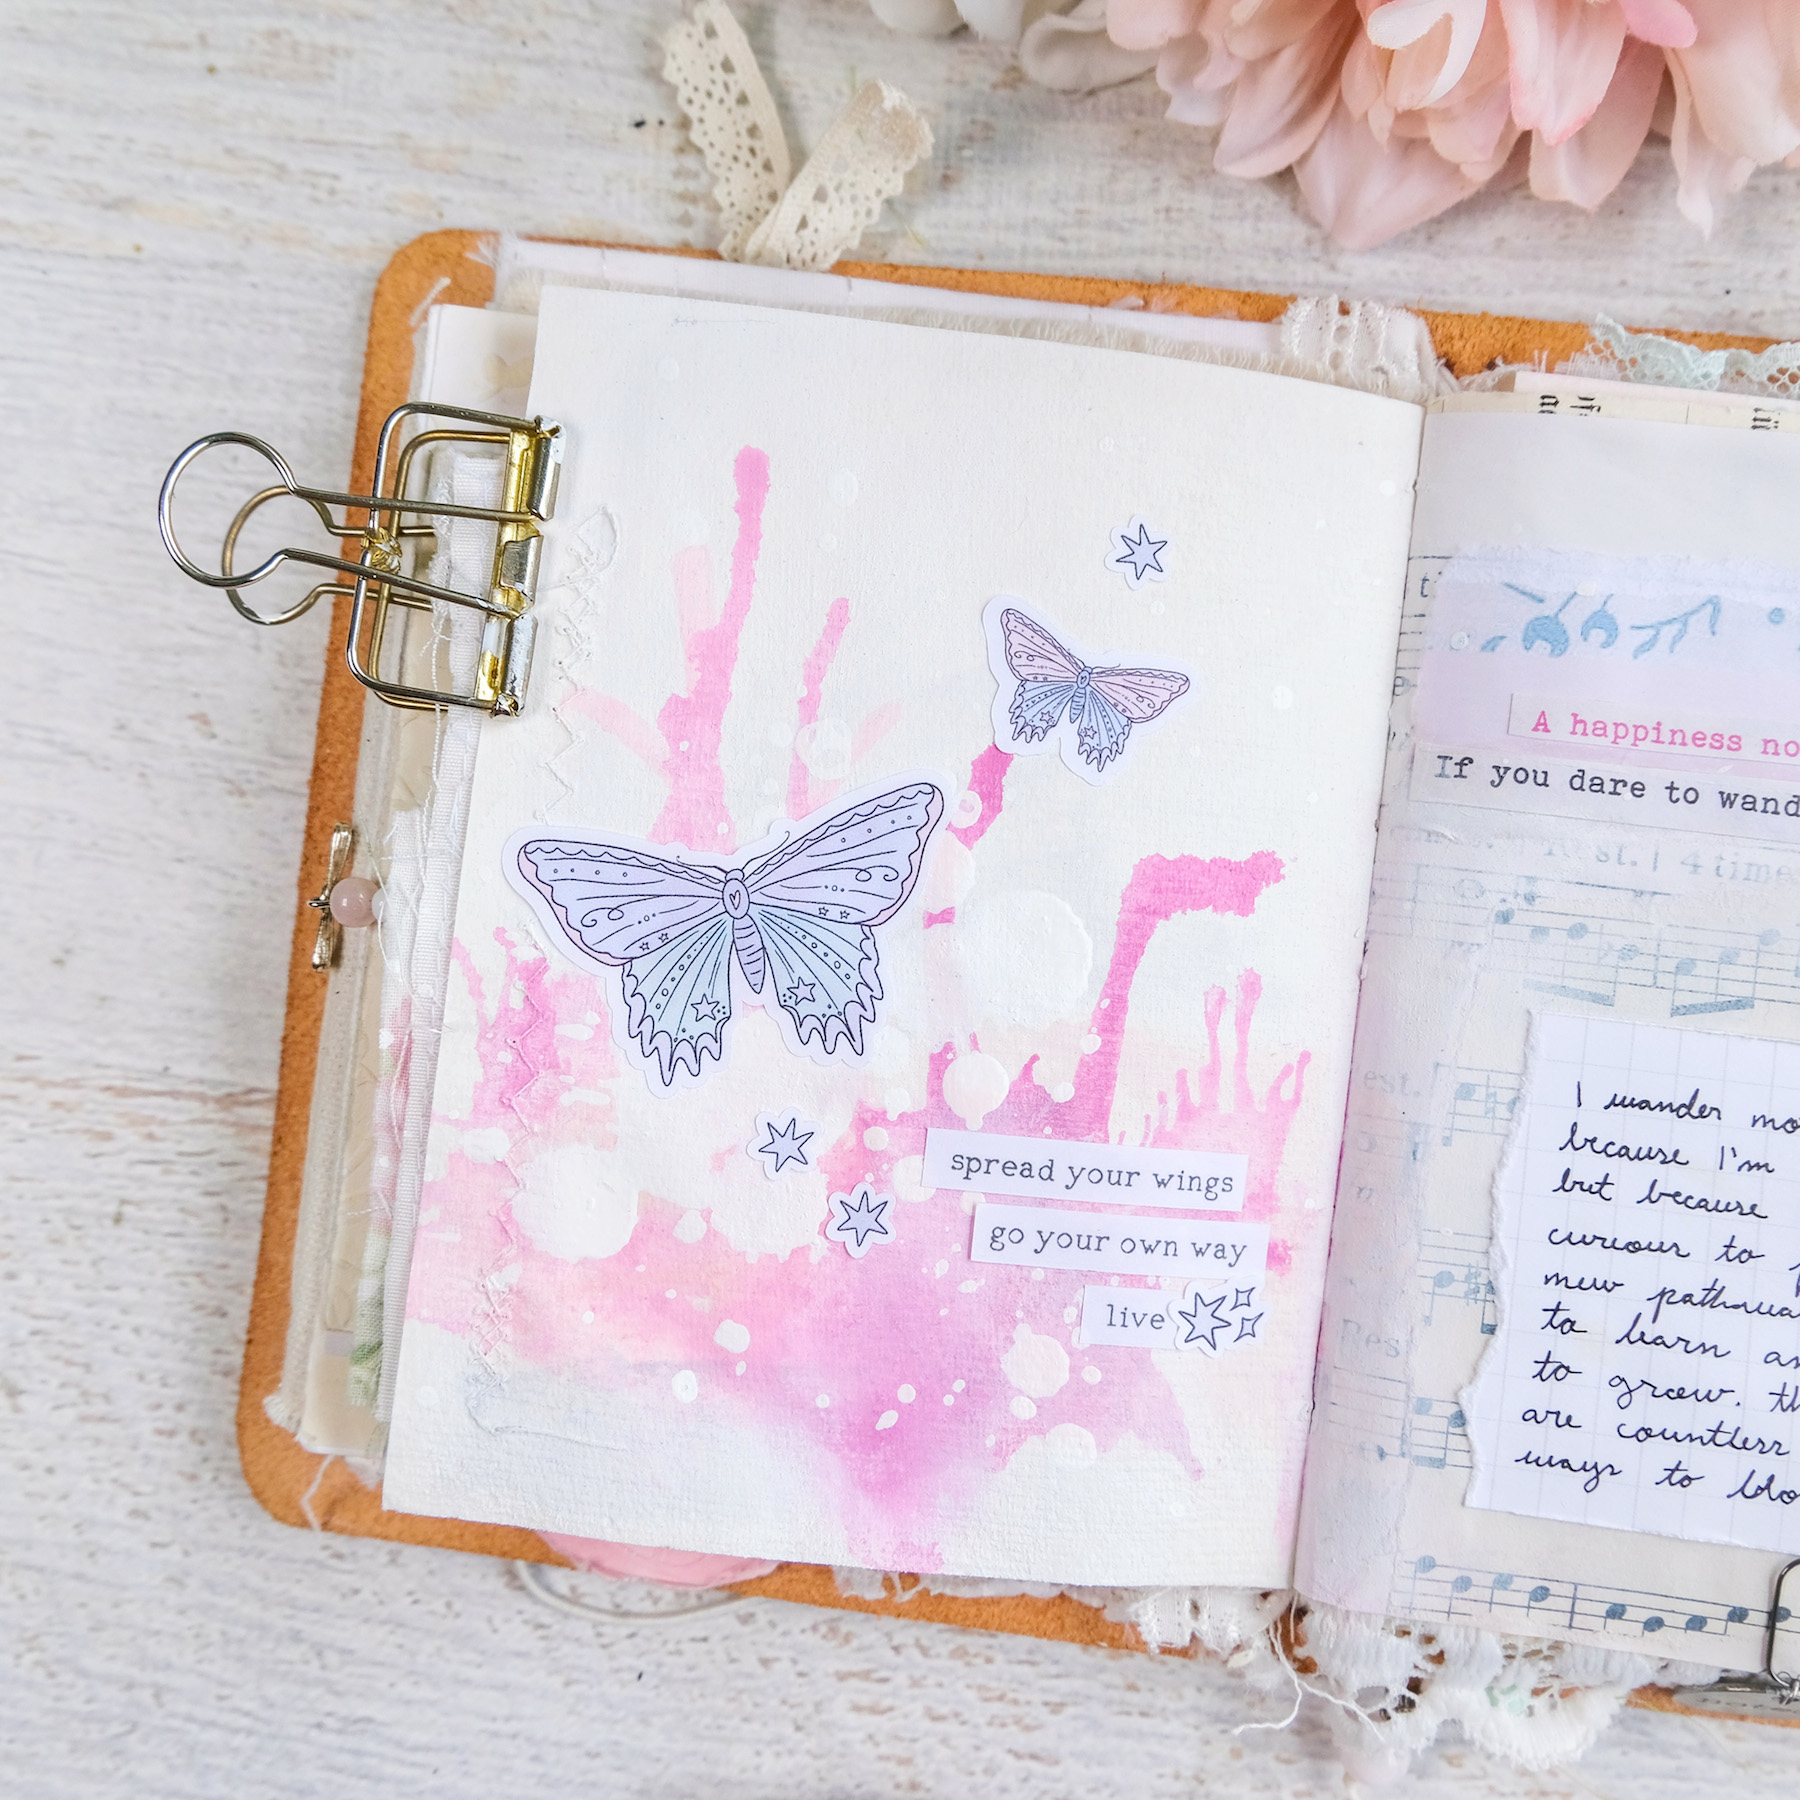 spread your wings
go your own way
live
A happiness no
If you dare to wand
est. | 4 time
I wander mo
because I'm
but because
curious to
new pathwa
to learn an
to grow. th
are countless
ways to blo